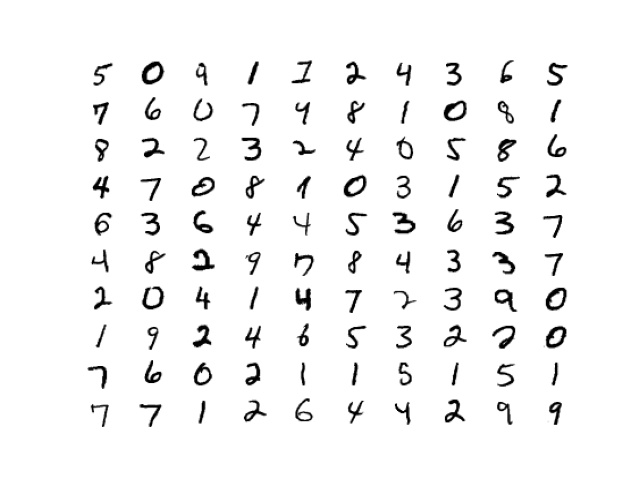 5 0 9 1 1 2 4 3 6 5
7 6 0 7 4 8 1 0 8 1
8 2 2 3 2 4 0 5 8 6
4 7 0 8 1 0 3 1 5 2
6 3 6 4 4 5 3 6 3 7
4 8 2 9 7 8 4 3 3 7
2 0 4 1 4 7 2 3 9 0
1 9 2 4 6 5 3 2 2 0
7 6 0 2 1 1 5 1 5 1
7 7 1 2 6 4 4 2 9 9